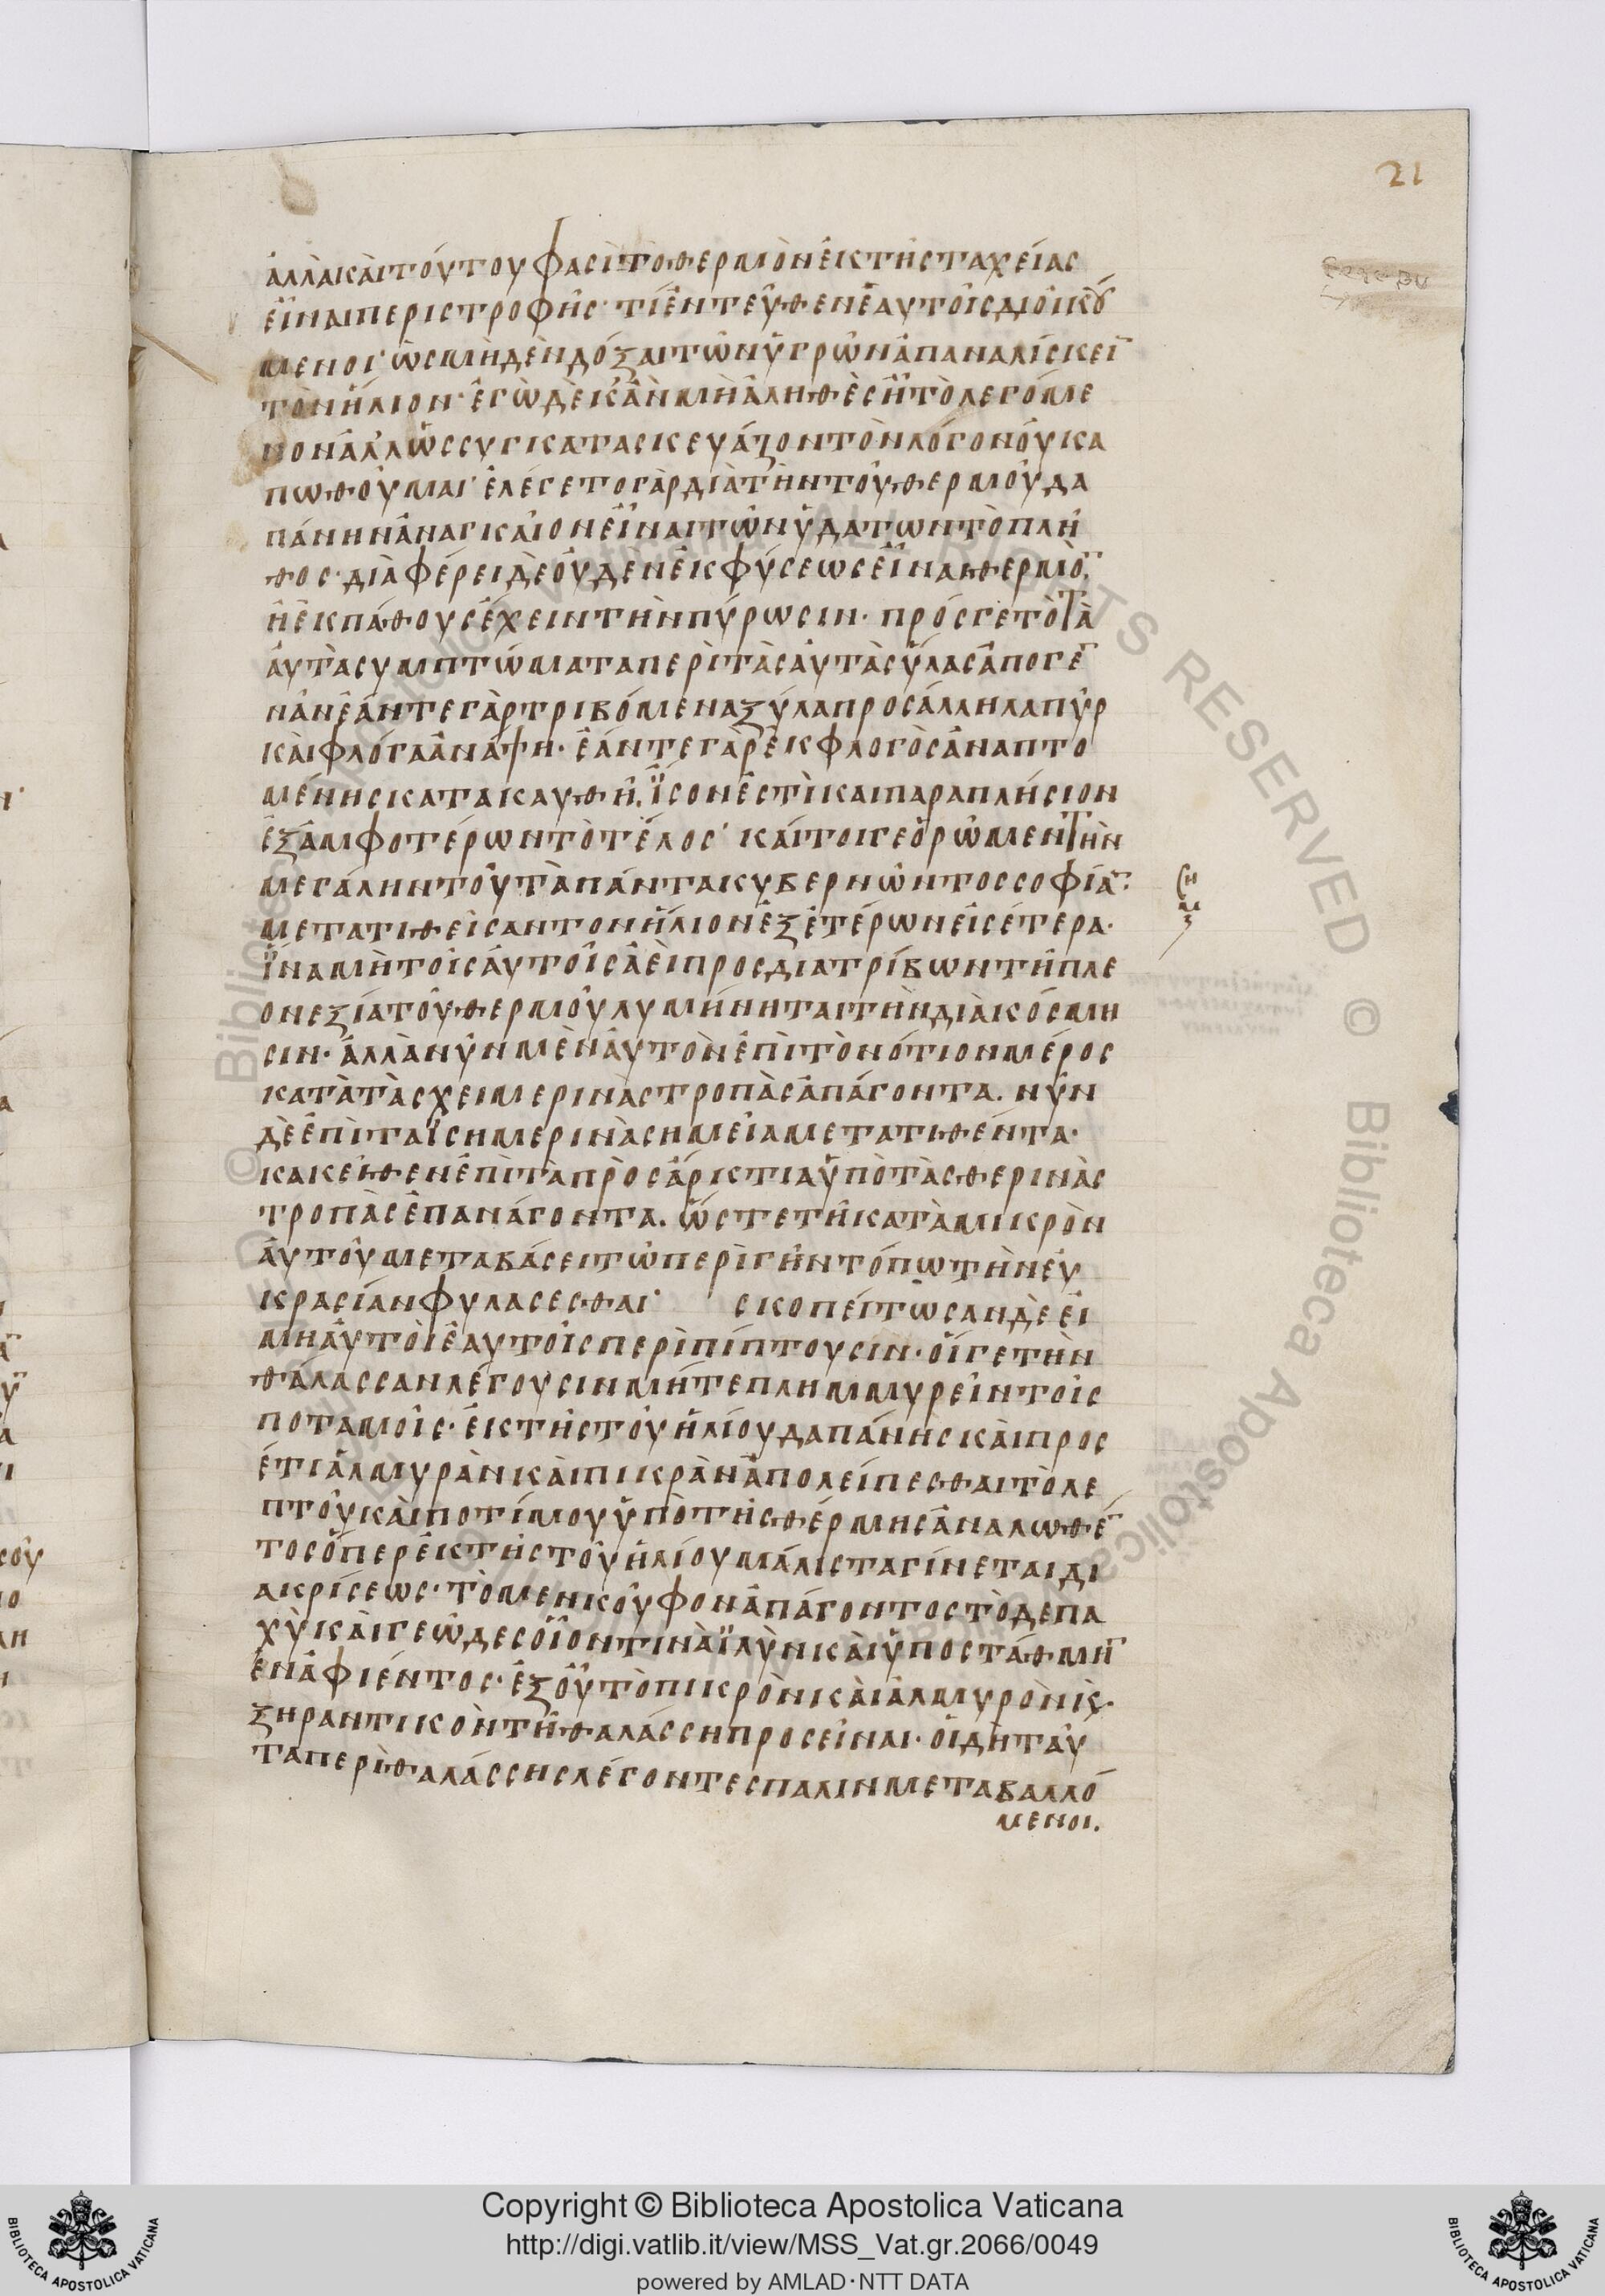 21
ἀλλὰ καὶ τούτου φασὶ τὸ θερμὸν ἐκ τῆς ταχείας
εἶναι περιστροφῆς· τί ἐντεῦθεν ἑαυτοῖς διοικού
μενοι· ὡς μηδὲν δόξαι τῶν ὑγρῶν ἀπαναλίσκει̅
τὸν ἥλιον· ἐγὼ δὲ κἂν μὴ ἀληθὲς ἦ τὸ λεγόμε
νον ἀλλ᾽ ὡς συγκατασκευάζον τὸν λόγον οὐκ ἀ
πωθοῦμαι· ἐλέγετο γὰρ διὰ τὴν τοῦ θερμοῦ δα
πάνην ἀναγκαῖον εἶναι τῶν ὑδάτων τὸ πλῆ
θος· διαφέρει δὲ οὐδὲν ἐκ φύσεως εἶναι θερμὸ̅
ἢ ἐκ πάθους ἔχειν τὴν πύρωσιν· πρός γε τὸ τὰ
αὐτὰ συμπτώματα περὶ τὰς αὐτὰς ὕλας ἀπογε̅
νᾶν ἐάν τε γὰρ τριβόμενα ξύλα προσάλληλα πῦρ
καὶ φλόγα ἀνάψη· ἐάν τε γὰρ ἐκ φλογὸς ἀναπτο
μένης κατακαυθῆ, ἴσον ἐστὶ καὶ παραπλήσιον
ἐξ ἀμφοτέρων τὸ τέλος· καίτοιγε ὁρῶμεν τὴν
μεγάλην τοῦ τὰ πάντα κυβερνῶντος σοφία̅·
μετατιθεῖσαν τον ἥλιον ἐξ ἑτέρων εἰς ἕτερα·
ἵνα μὴ τοῖς αὐτοῖς ἀεὶ προσδιατρίβων τῆ πλε
ονεξία τοῦ θερμοῦ λυμήνηται τὴν διακόσμη
σιν· ἀλλὰ νῦν μὲν αὐτὸν ἐπὶ τὸ νότιον μέρος
κατὰ τὰς χειμερινὰς τροπὰς ἀπάγοντα. νῦν
δὲ ἐπὶ τα ἰσημερινὰ σημεῖα μετατιθέντα·
κακεῖθεν ἐπὶ τὰ πρὸς ἄρκτια ὑπὸ τὰς θερινὰς
τροπὰς ἐπανάγοντα. ὥστε τῆ κατὰ μικρὸν
αὐτοῦ μεταβάσει τῶ περὶ γῆν τόπω τὴν εὐ
κρασίαν φυλάσεσθαι· σκοπείτωσαν δὲ εἰ
μὴ αὐτοὶ ἑαυτοῖς περιπίπτουσιν· οἵ γε τὴν
θάλασσαν λέγουσιν μήτε πλημμυρεῖν τοῖς
ποταμοῖς· ἐκ τῆς τοῦ ἡλίου δαπάνης καὶ προς
έτι ἁλμυρὰν καὶ πικρὰν ἀπολείπεσθαι τὸ λε
πτοῦ καὶ ποτίμου ὑπὸ τῆς θέρμης ἀναλωθέ̅
τος ὅπερ ἐκ τῆς τοῦ ἡλίου μάλιστα γίνεται δι
ακρίσεως· τὸ μεν κοῦφον ἀπάγοντος τὸ δε πα
χὺ καὶ γεῶδες οἷον τινὰ ἰλὺν καὶ ὑποστάθμη̅
ἐναφιέντος· ἐξ οὗ τὸ πικρὸν καὶ ἁλμυρὸν ϗ
ξηραντικὸν τῆ θαλάσση προσεῖναι· οἳ δὴ ταῦ
τα περὶ θαλάσσης λέγοντες παλιν μεταβαλλό
μενοι.
Copyright © Biblioteca Apostolica Vaticana
http://digi.vatlib.it/view/MSS_Vat.gr.2066/0049
powered by AMLAD·NTT DATA
BIBLIOTECA APOSTOLICA VATICANA
BIBLIOTECA APOSTOLICA VATICANA